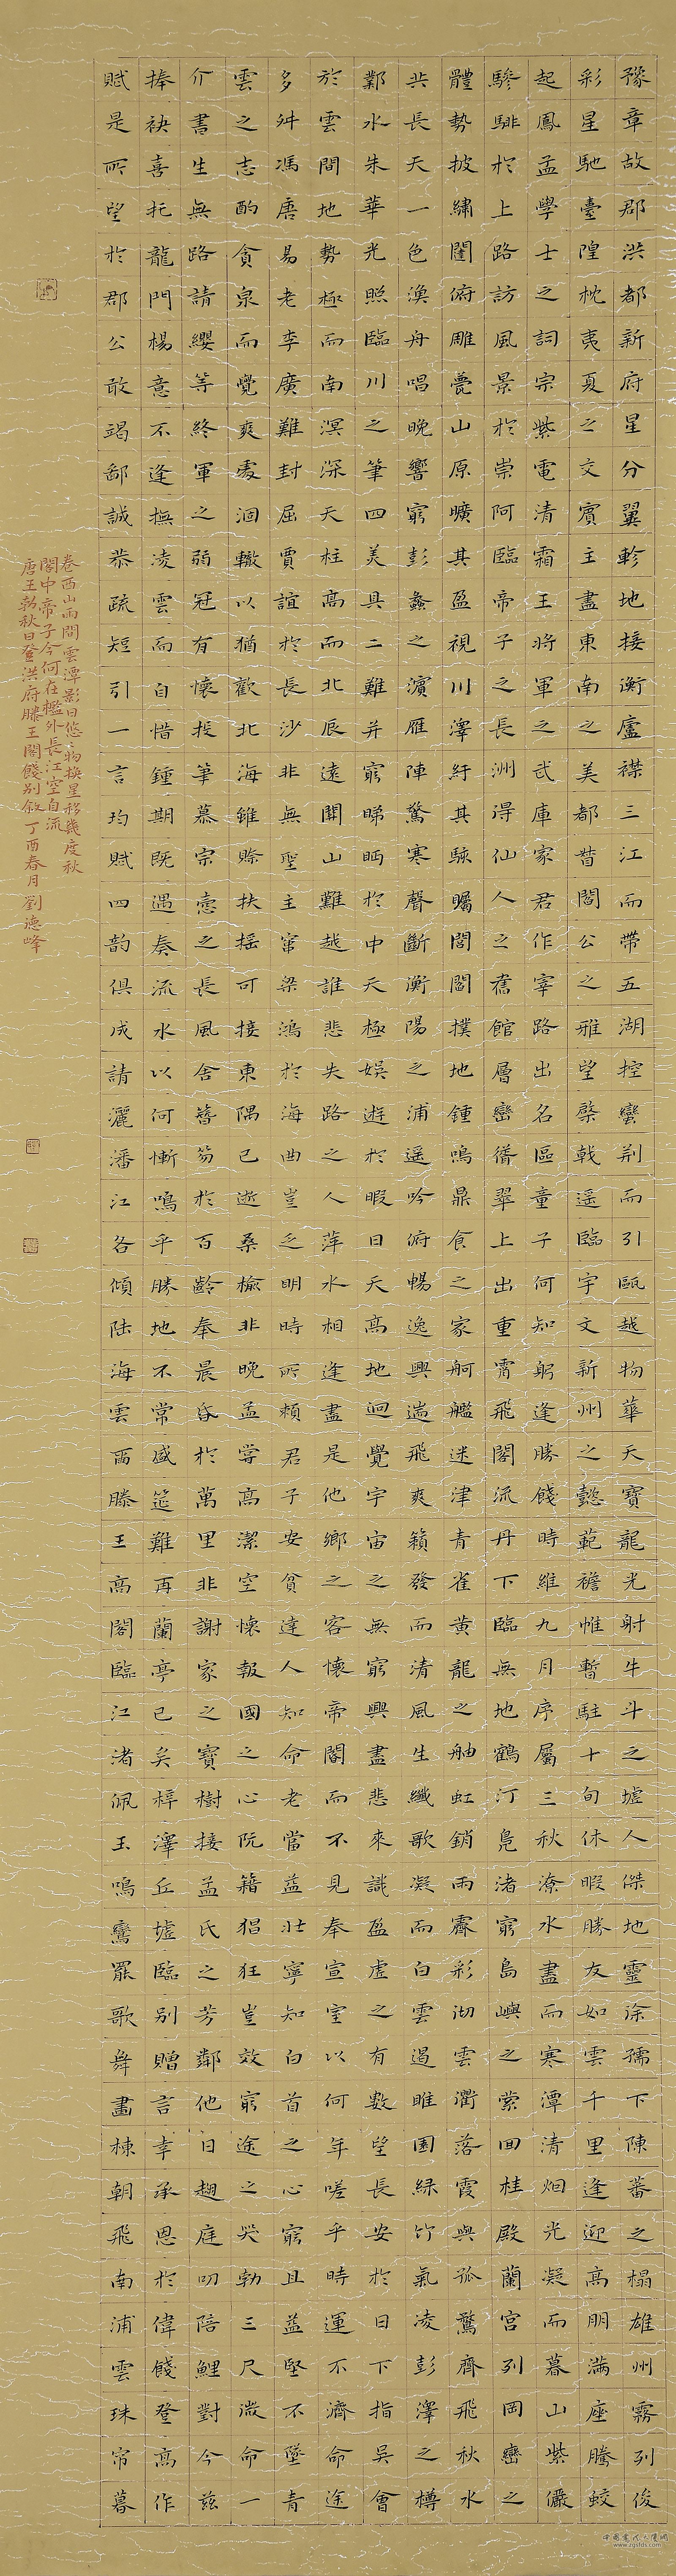 豫章故郡洪都新府星分翼軫地接衡廬襟三江而帶五湖控蠻荊而引甌越物華天寶龍光射牛斗之墟人傑地靈徐孺下陳蕃之榻雄州霧列俊
彩星馳臺隍枕夷夏之交賓主盡東南之美都督閻公之雅望棨戟遥臨宇文新州之懿範襜帷暫駐十旬休暇勝友如雲千里逢迎高朋滿座騰蛟
起鳳孟學士之詞宗紫電清霜王將軍之武庫家君作宰路出名區童子何知躬逢勝餞時維九月序屬三秋潦水盡而寒潭清烟光凝而暮山紫儼
驂騑於上路訪風景於崇阿臨帝子之長洲得仙人之舊館層巒聳翠上出重霄飛閣流丹下臨無地鶴汀鳧渚窮島嶼之縈回桂殿蘭宮列岡巒之
體勢披繡闥俯雕甍山原曠其盈視川澤紆其駭矚閭閻撲地鍾鳴鼎食之家舸艦迷津青雀黃龍之舳虹銷雨霽彩沏雲衢落霞與孤鶩齊飛秋水
共長天一色漁舟唱晚響窮彭蠡之濱雁陣驚寒聲斷衡陽之浦遥吟俯暢逸興遄飛爽籟發而清風生纖歌凝而白雲遏睢園綠竹氣凌彭澤之樽
鄴水朱華光照臨川之筆四美具二難并窮睇眄於中天極娛遊於暇日天高地迥覺宇宙之無窮興盡悲來識盈虛之有數望長安於日下指吳會
於雲間地勢極而南溟深天柱高而北辰遠關山難越誰悲失路之人萍水相逢盡是他鄉之客懷帝閽而不見奉宣室以何年嗟乎時運不濟命途
多舛馮唐易老李廣難封屈賈誼於長沙非無聖主竄梁鴻於海曲豈乏明時所賴君子安貧達人知命老當益壯寧知白首之心窮且益堅不墜青
雲之志酌貪泉而覺爽處涸轍以猶歡北海雖賒扶摇可接東隅已逝桑榆非晚孟嘗高潔空懷報國之心阮籍猖狂豈效窮途之哭勃三尺微命一
介書生無路請纓等終軍之弱冠有懷投筆慕宗愨之長風舍簪笏於百齡奉晨昏於萬里非謝家之寶樹接孟氏之芳鄰他日趨庭叨陪鯉對今茲
捧袂喜托龍門楊意不逢撫凌雲而自惜鍾期既遇奏流水以何慚嗚乎勝地不常盛筵難再蘭亭已矣梓澤丘墟臨別贈言幸承恩於偉餞登高作
賦是所望於郡公敢竭鄙誠恭疏短引一言均賦四韵俱成請灑潘江各傾陸海雲爾滕王高閣臨江渚佩玉鳴鸞罷歌舞畫棟朝飛南浦雲珠帘暮
卷西山雨閒雲潭影日悠〻物換星移幾度秋
閣中帝子今何在檻外長江空自流
唐王勃秋日登洪府滕王閣餞別叙丁酉春月劉德峰